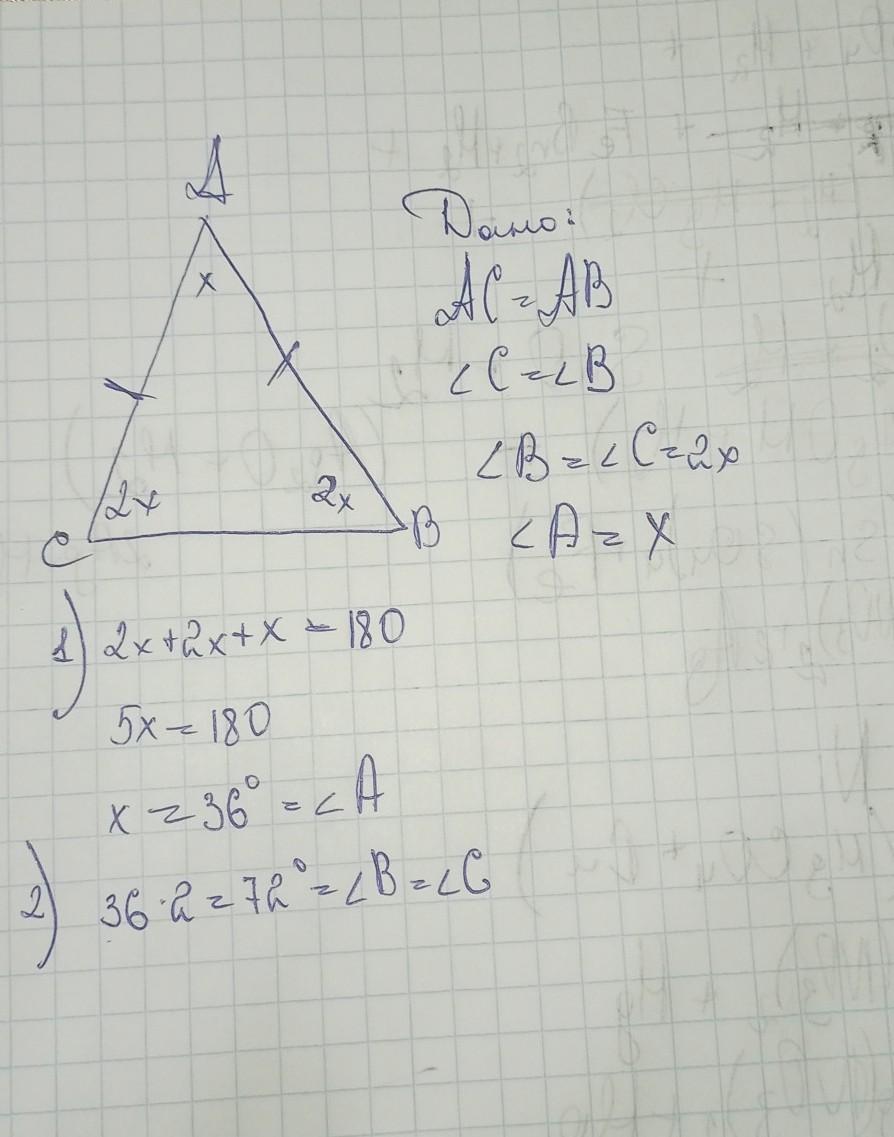 A
x
2x
2x
C
B
Дано:
AC = AB
∠C = ∠B
∠B = ∠C = 2x
∠A = x
1) 2x + 2x + x = 180
5x = 180
x = 36° = ∠A
2) 36 · 2 = 72° = ∠B = ∠C